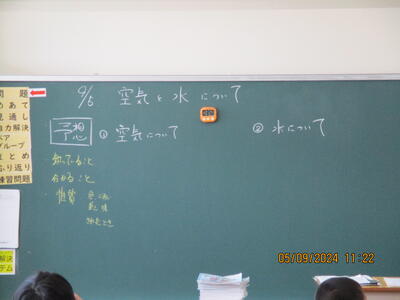 9/5 空気と水について
予想 ① 空気について ② 水について
知っていること
分かること
性質
問題
めあて
見通し
自力解決
ペア
グループ
まとめ
ふり返り
練習問題
05/09/2024 11:22